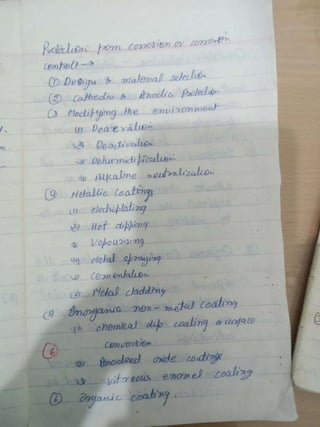 Protection from corrosion or corrosion
control →
① Design & material selection
② Cathodic & Anodic Protection
③ Modifying the environment
(1) Deaeration
(2) Deactivation
(3) Dehumidification
(4) Alkaline neutralization
④ Metallic Coatings
(1) electroplating
(2) Hot dipping
(3) Vapourising
(4) Metal spraying
(5) Cementation
(6) Metal cladding
(5) Inorganic non-metal coating
(1) chemical dip coating surface
⑥ conversion
(2) Anodized oxide coatings
(3) vitreous enamel coating
⑥ Organic coating.